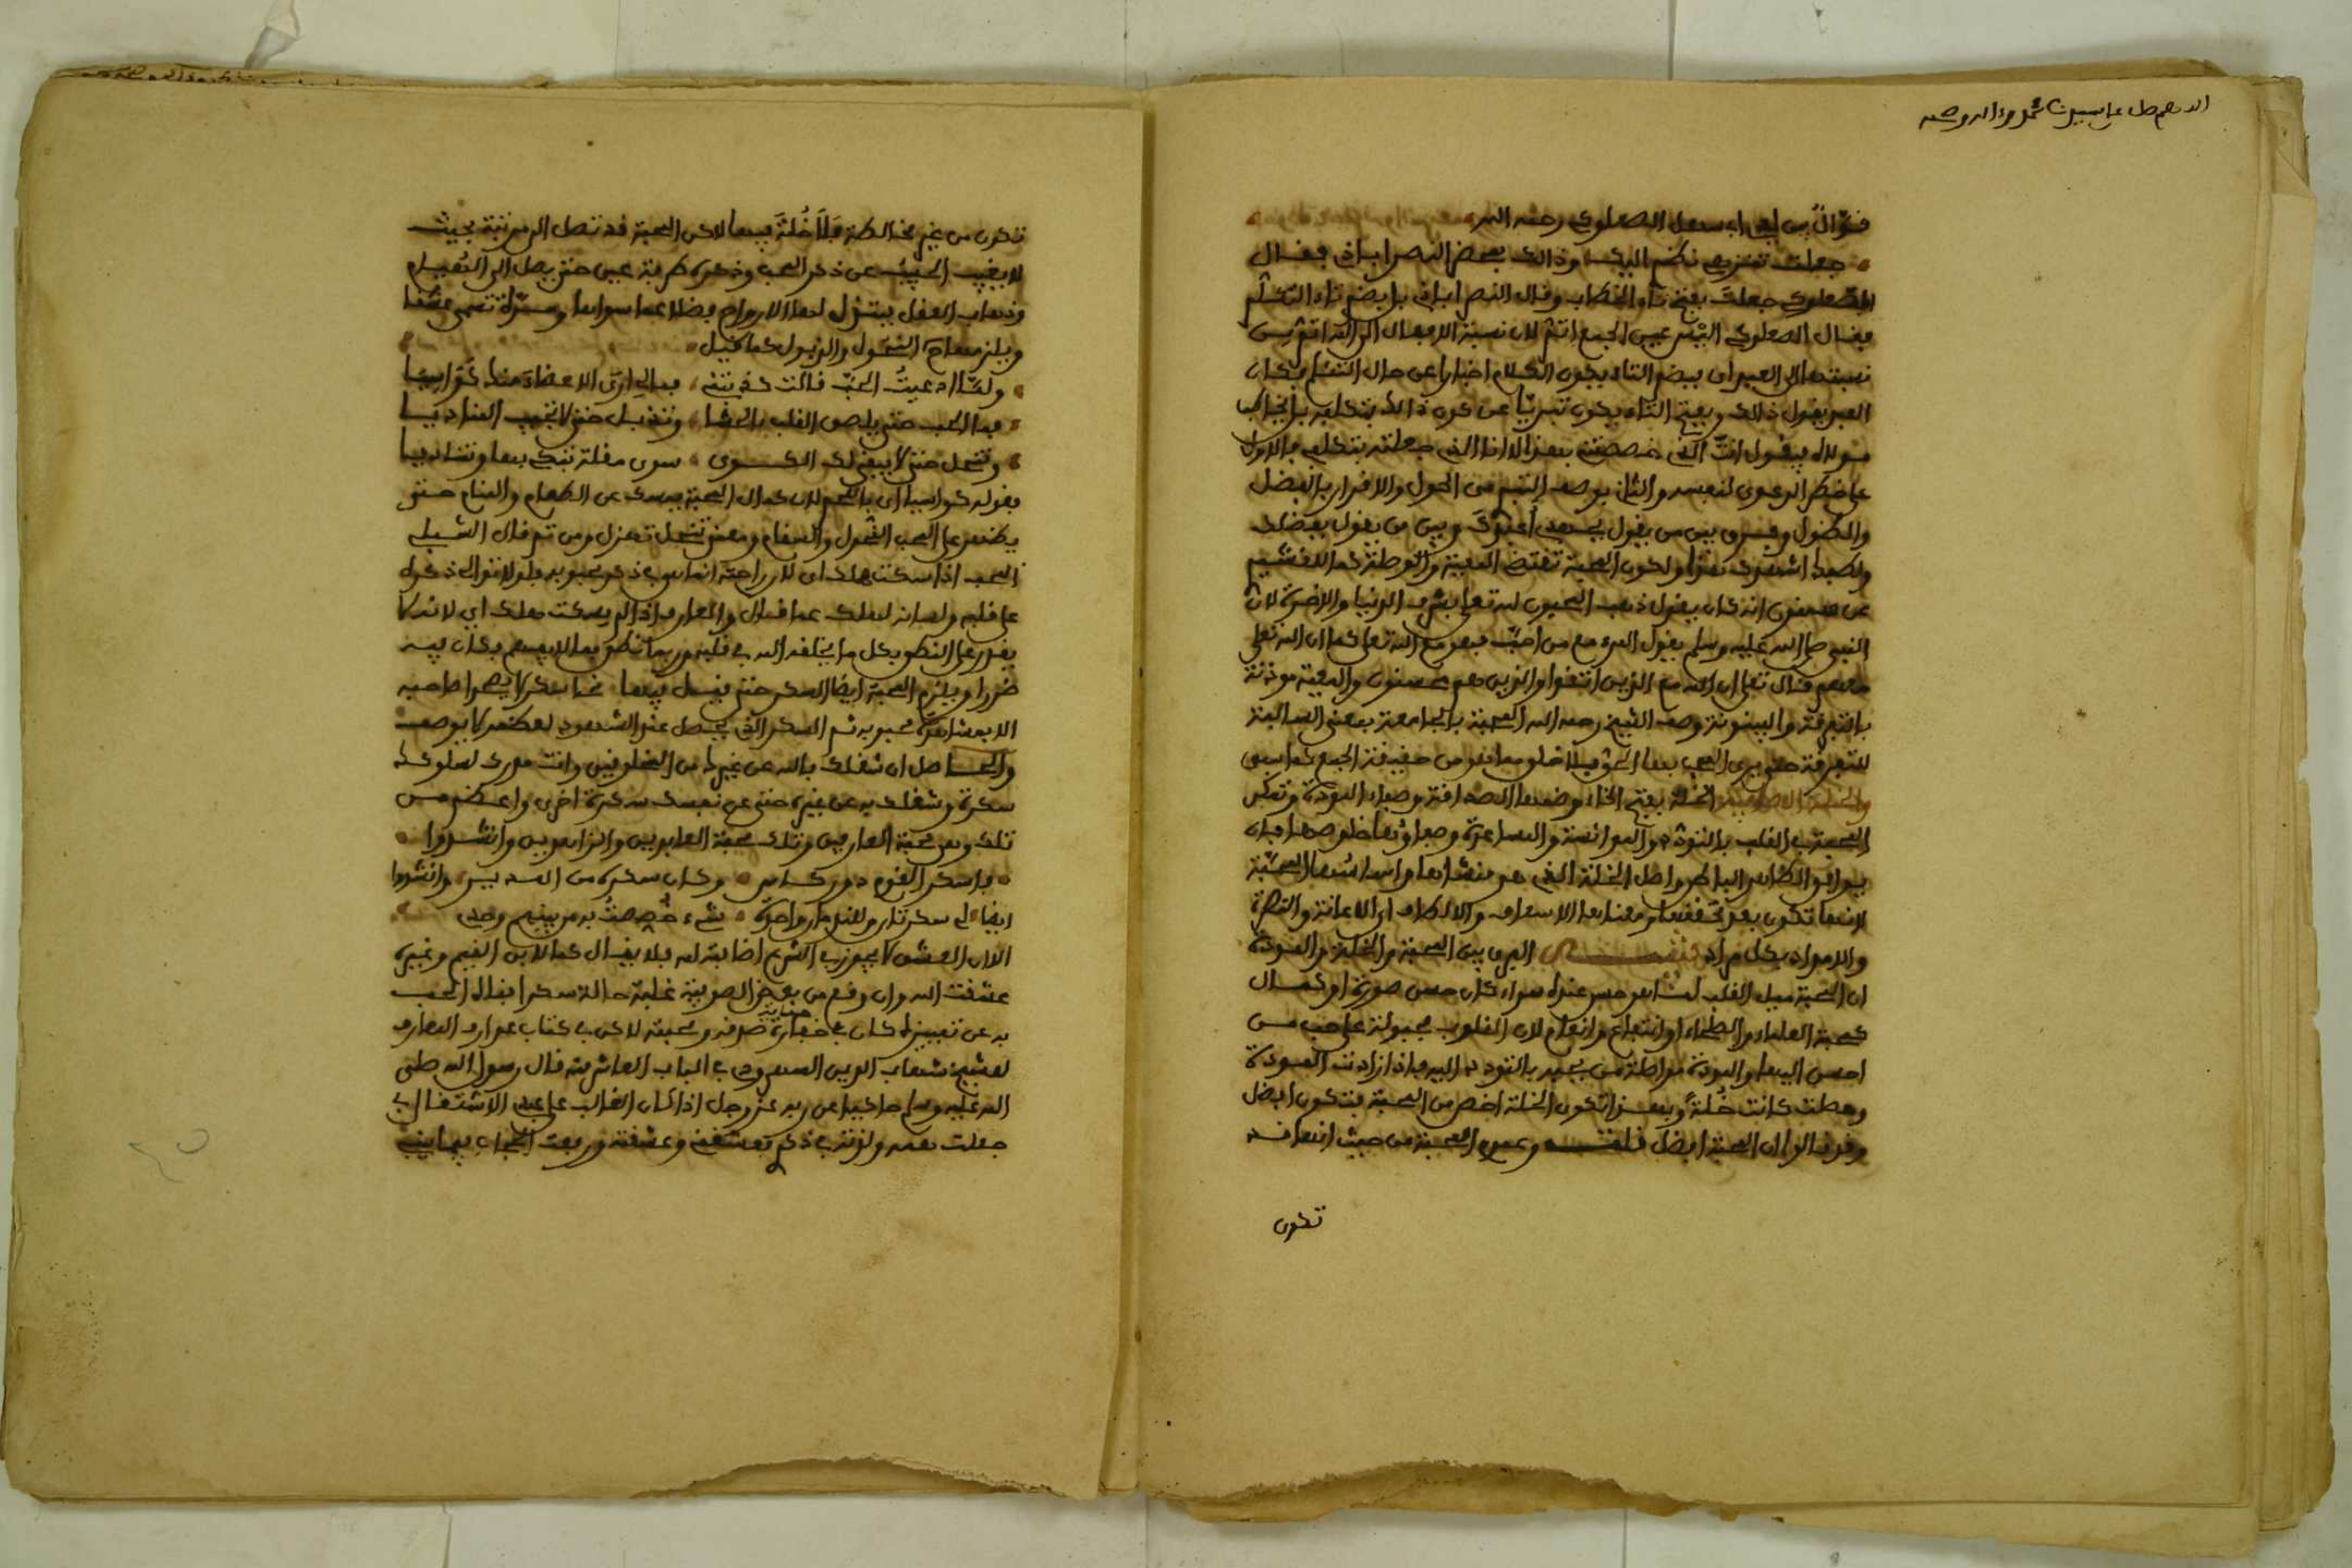 اللهم صل على سيدنا محمد وءاله وصحبه
قوال بين يدي ابي سهل الصعلوكي رحمه الله
جعلت تنزهي نظري اليكا وذالك بعض النصراباذي فقال
الصعلوكي جعلتَ بفتح تاء الخطاب وقال النصراباذي بل بضم تاء التكلم
فقال الصعلوكي اليس عين الجمع اتم لان نسبة الافعال الى الله اتم من
نسبتها الى العبد اي بضم التاء يكون الكلام اخبارا عن حال المتكلم فكان
العبد يقول ذالك وبفتح التاء يكون تبريا عن كون ذالك بتكلفه بل يخاطب
مولاه فيقول انت الذي خصصتني بهذا لا انا الذي جعلته بتكلفي فالاول
على خطر الدعوى لنفسه والثاني بوصف التبري من الحول والاقرار بالفضل
والطول وفرق بين من يقول بجهدي اعبدك وبين من يقول بفضلك
ولطفك اشهدك
عن سمنون انه كان يقول ذهب المحبون لله تعلى بشرف الدنيا والاخرة لان
النبي صلى الله عليه وسلم يقول المرء مع من احب فهو مع الله تعلى كما ان الله تعلى
معهم قال تعلى ان الله مع الذين اتقوا والذين هم محسنون والمعية موذنة
بالتفرقة والبينونة وصف الشيخ رحمه الله المحبة بالجامعة بمعنى السالبة
للتفرقة حتى يرى المحب بها الحق بلا خلق معا وهو من حقيقة الجمع كما سبق
الخلة بفتح الخاء وضمها الصداقة وصفاء المودة وتمكن
المحبة في القلب بالتودد والموانسة والمساعدة
يوافق الظاهر الباطن واصل الخلة الذي هو منشاها واساسها المحبة
لانها تكون بعد تحققها ومعناها الاسعاف والالطاف اي الاعانة والنصرة
والامداد بكل مراد الفرق بين المحبة والخلة والمودة
ان المحبة ميل القلب لشاهد حسن عنده سواء كان حسن صورة او كمال
كمحبة العلماء والصلحاء او انتفاع وانعام لان القلوب مجبولة على حب من
احسن اليها والمودة مواصلة من يحبه بالتودد اليه فاذا زادت المودة
وصلت كانت خُلة وبهذا تكون الخلة اخص من المحبة فتكون افضل
وقد قالوا ان المحبة افضل وعموم المحبة من حيث انها قد
تكون
تكون من غير مخالطة فلا خُلة فيها لاكن المحبة قد تصل الى مرتبة بحيث
لا يغيب الحبيب عن ذكر المحب وذكره طرفة عين حتى يصل الى الهيام
وذهاب العقل فيبذل لها الارواح فضلا عما سواها وحينئذ تسمى عشقا
ويلزمها النحول والذبول كما قيل
ولما ادعيتُ الحبّ قالت كذبتني فمالي ارى الاعضاء منك كواسيا
فما الحب حتى يلصق القلب بالحشا وتذبل حتى لا تجيب المناديا
وتنحل حتى لا يبقي لك الهوى سوى مقلة تبكي بها وتناجيا
فقوله كواسيا اي باللحم لان كمال المحبة يمسك عن الطعام والمنام حتى
يظهر على المحب النحول والسقام ومعنى تنحل تهزل ومن ثم قال الشبلي
المحب اذا سكت هلك اي لان راحته انما هي في ذكر محبوبه فلولا توالي ذكره
على قلبه ولسانه لهلك عما قال والعارف اذا لم يسكت هلك اي لانه لا
يقدر على النطق بكل ما يخلقه الله في قلبه وربما نطق بما لا يفهم فكان فيه
ضررا ويلزم المحبة ايضا السكر حتى قيل فيها سكر لا يصحوا صاحبه
الا بمشاهدة محبوبه ثم السكر الذي يحصل عند الشهود لعظمه لا يوصف
والحاصل ان شغلك بالله عن غيره من المخلوقين وانت مدرك لسلوكك
سكرة وشغلك به عن غيره حتى عن نفسك سكرة اخرى واعظم من
تلك وهي محبة العارفين وتلك محبة العابدين والزاهدين وانشدوا
فاسكر القوم دور كاس وكان سكره من المدير وانشدوا
ايضا لي سكرتان وللندمان واحدة شيء خُصصتُ به من بينهم وحدي
الا ان العشق لا يجوز في الشرع اضافته له فلا يقال كما لابن القيم وغيره
عشقت الله وان وقع من بعض الصوفية غلبة حالة سكر
به عن تمييزه كان في خفارة صدقه ومحبته لاكن في كتاب عوارف المعارف
للشيخ شهاب الدين السهروردي في الباب العاشر منه قال رسول الله صلى
الله عليه وسلم حاكيا عن ربه عز وجل اذا كان الغالب على عبدي الاشتغال بي
جعلت همه ولذته في ذكري فعشقني وعشقته ورفعت الحجاب فيما بيني